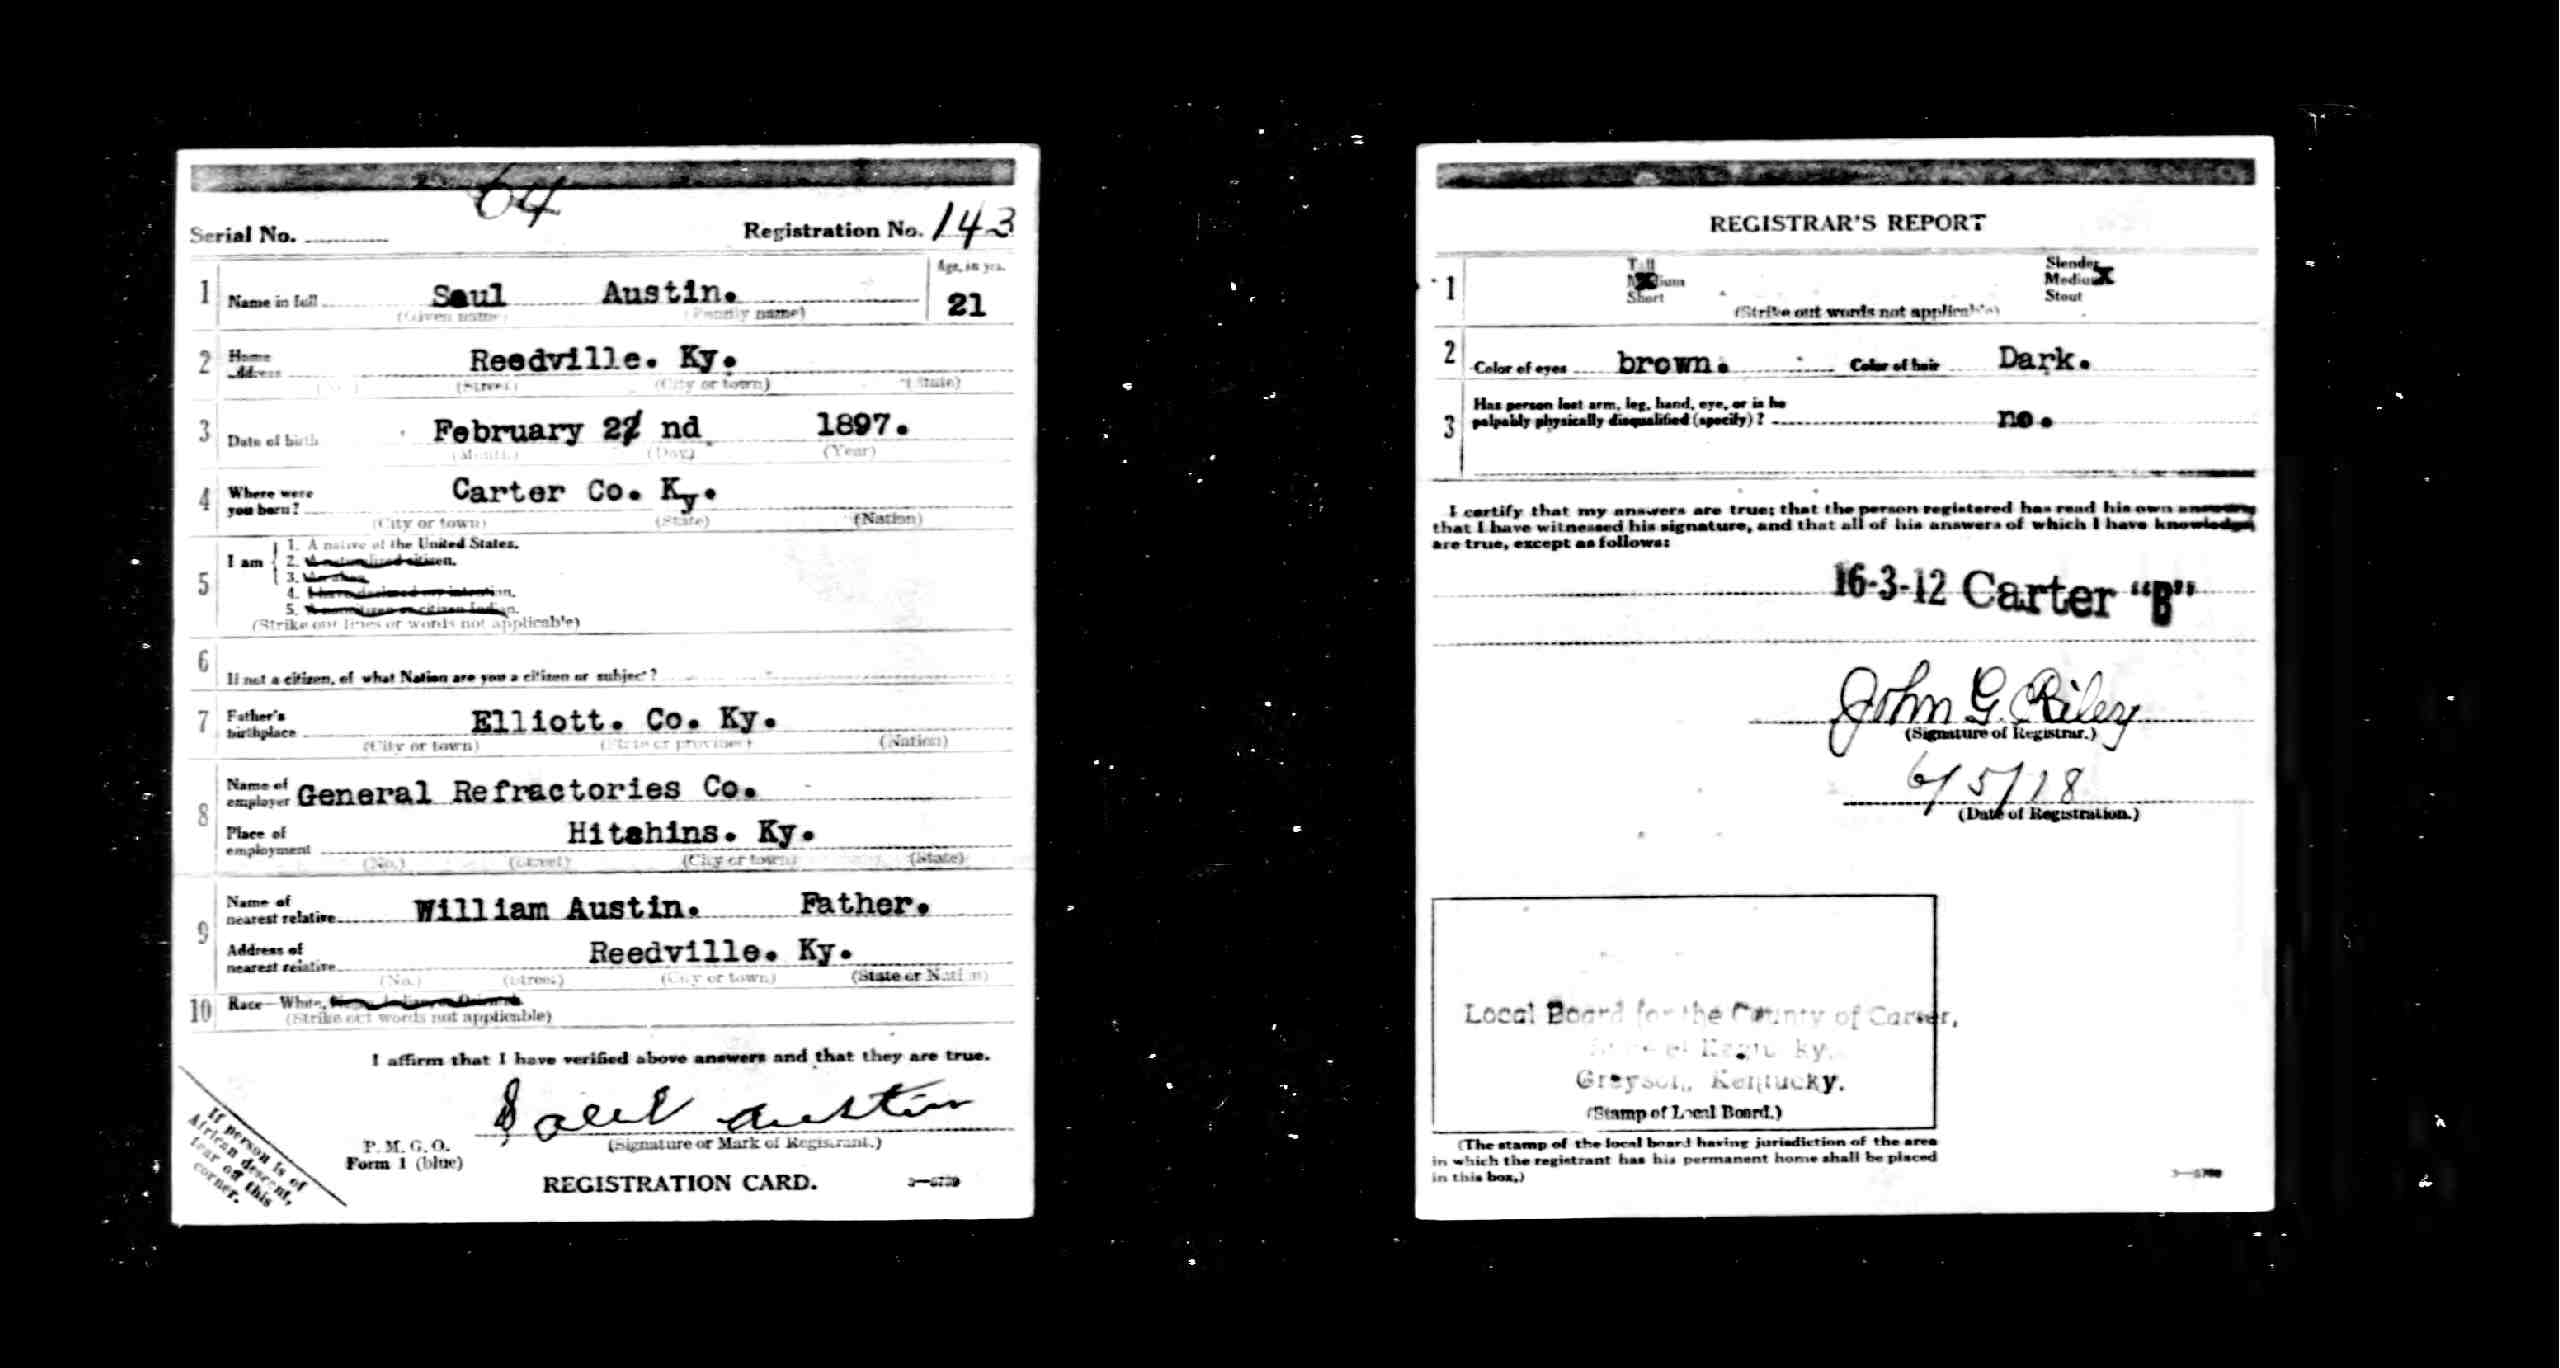 64
Serial No. Registration No. 143
1 Name in full Saul Austin. Age, in yrs.
(Given name) (Family name) 21
2 Home address Reedville. Ky.
(No.) (Street) (City or town) (State)
3 Date of birth February 22 nd 1897.
(Month) (Day) (Year)
4 Where were you born? Carter Co. Ky.
(City or town) (State) (Nation)
5 I am
1. A native of the United States.
2. A naturalized citizen.
3. An alien.
4. I have declared my intention.
5. A noncitizen or citizen Indian.
(Strike out lines or words not applicable)
6 If not a citizen, of what Nation are you a citizen or subject?
7 Father's birthplace Elliott. Co. Ky.
(City or town) (State or province) (Nation)
8 Name of employer General Refractories Co.
Place of employment Hitchins. Ky.
(No.) (Street) (City or town) (State)
9 Name of nearest relative William Austin. Father.
Address of nearest relative Reedville. Ky.
(No.) (Street) (City or town) (State or Nation)
10 Race—White, Negro, Indian, or Oriental.
(Strike out words not applicable)
I affirm that I have verified above answers and that they are true.
Saul Austin
(Signature or Mark of Registrant.)
P. M. G. O.
Form 1 (blue)
REGISTRATION CARD.
If person is of
African descent,
tear off this
corner.
REGISTRAR'S REPORT
1 Tall Slender
Medium Medium
Short Stout
(Strike out words not applicable)
2 Color of eyes brown. Color of hair Dark.
3 Has person lost arm, leg, hand, eye, or is he
palpably physically disqualified (specify)? no.
I certify that my answers are true; that the person registered has read his own answers
that I have witnessed his signature, and that all of his answers of which I have knowledge
are true, except as follows:
16-3-12 Carter "B"
John G. Riley
(Signature of Registrar.)
6/5/18
(Date of Registration.)
Local Board for the County of Carter,
State of Kentucky.
Grayson, Kentucky.
(Stamp of Local Board.)
(The stamp of the local board having jurisdiction of the area
in which the registrant has his permanent home shall be placed
in this box.)